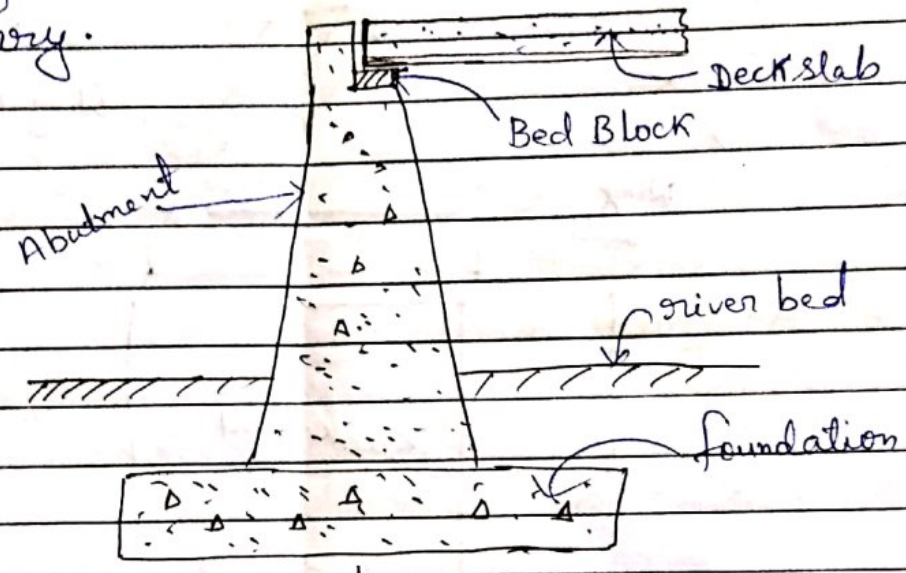 ory.
Deck slab
Bed Block
Abutment
river bed
foundation